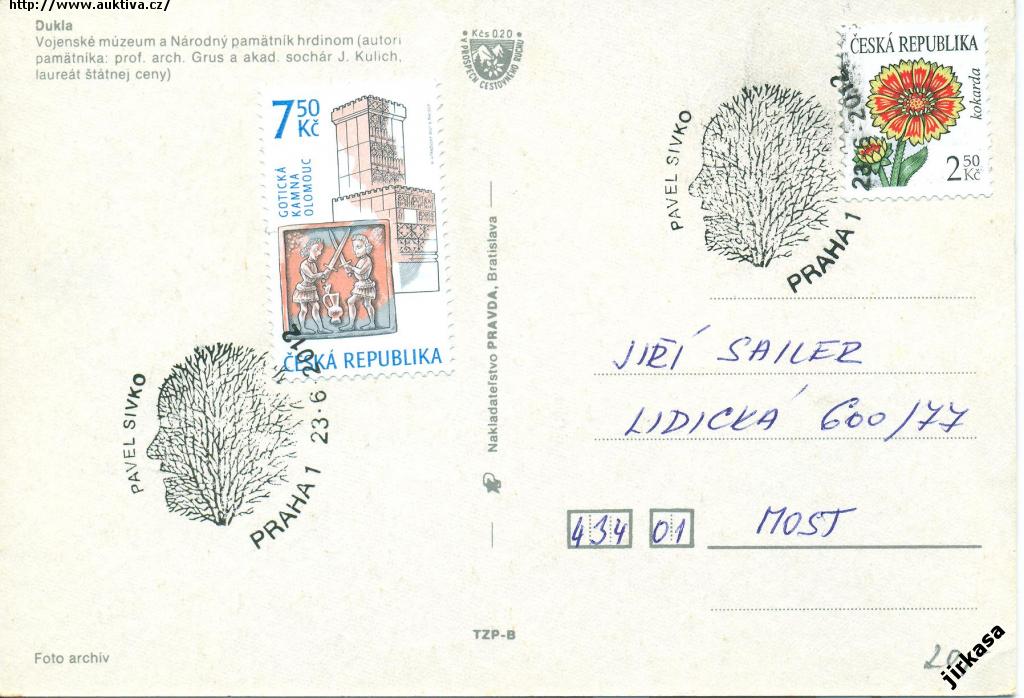 http://www.auktiva.cz/
Dukla
Vojenské múzeum a Národný pamätník hrdinom (autori
pamätníka: prof. arch. Grus a akad. sochár J. Kulich,
laureát štátnej ceny)
Kčs 0.20
V PROSPECH CESTOVNÉHO RUCHU
7,50
Kč
GOTICKÁ
KAMNA
OLOMOUC
ČESKÁ REPUBLIKA
PAVEL SIVKO
PRAHA 1
23·6 2012
Nakladateľstvo PRAVDA, Bratislava
ČESKÁ REPUBLIKA
kokarda
2,50
Kč
PAVEL SIVKO
PRAHA 1
23·6·2012
JIŘÍ SAILER
LIDICKÁ 600/77
434 01 MOST
TZP-B
Foto archív
20
jirkasa